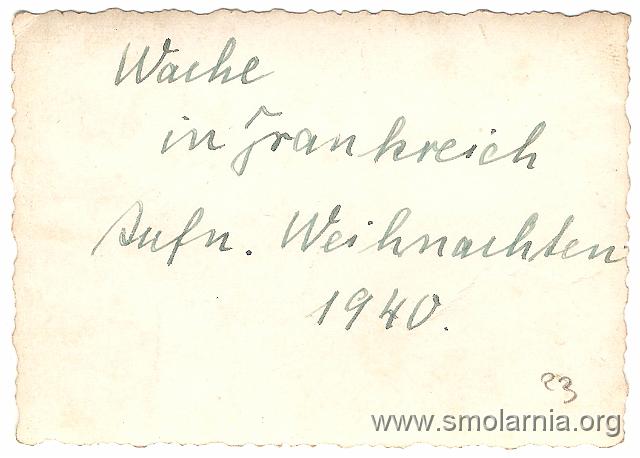 Wache
in Frankreich
Aufn. Weihnachten
1940.
23
www.smolarnia.org